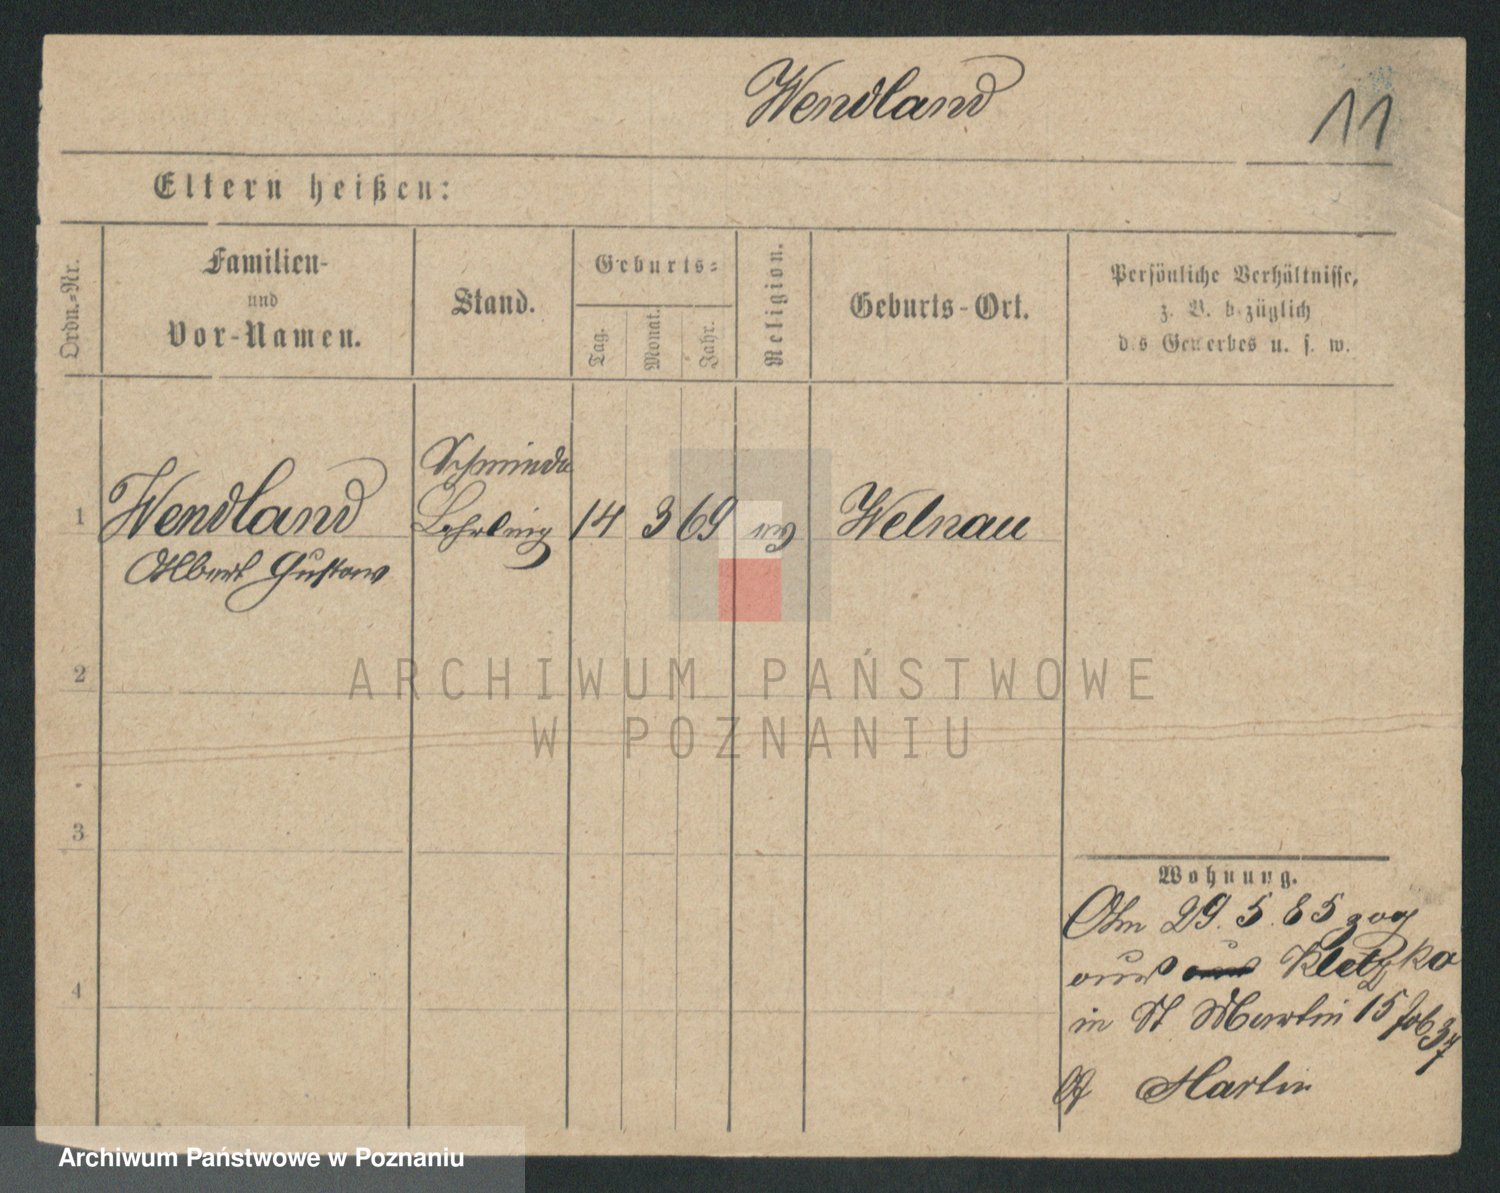 Wendland
11
Eltern heißen:
Ordn.-Nr.
Familien-
und
Vor-Namen.
Stand.
Geburts-
Tag.
Monat.
Jahr.
Religion.
Geburts-Ort.
Persönliche Verhältnisse,
z. B. bezüglich
des Gewerbes u. s. w.
1
Wendland
Albert Gustav
Schmiede
Lehrling
14 3 69
ev
Welnau
2
3
4
Wohnung.
Am 29. 5. 85 zog
aus Kletzko
in St Martin 15
St Martin
ARCHIWUM PAŃSTWOWE
W POZNANIU
Archiwum Państwowe w Poznaniu